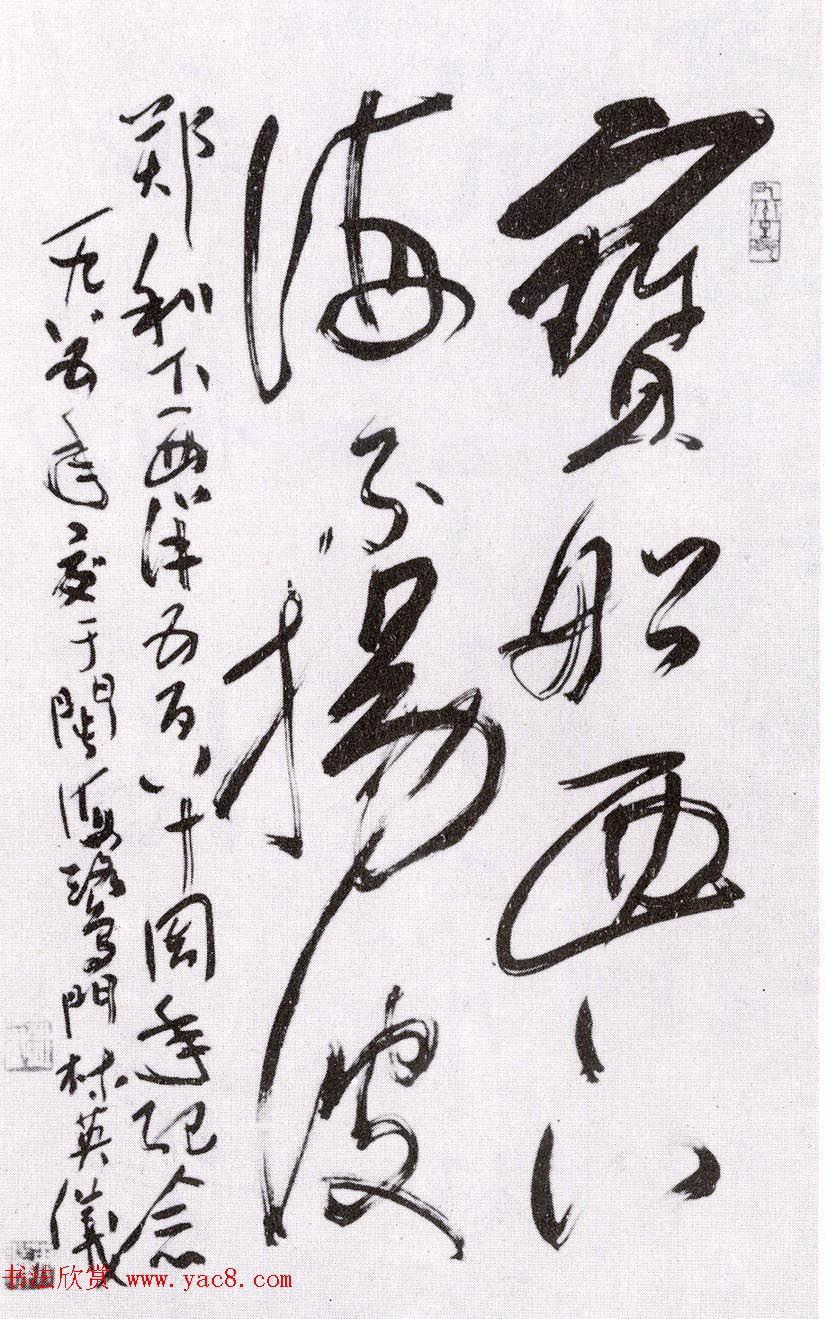 寶船西行
海不揚波
郑和下西洋五百八十周年纪念
一九八五年夏于閩海鷺門林英儀
书法欣赏 www.yac8.com